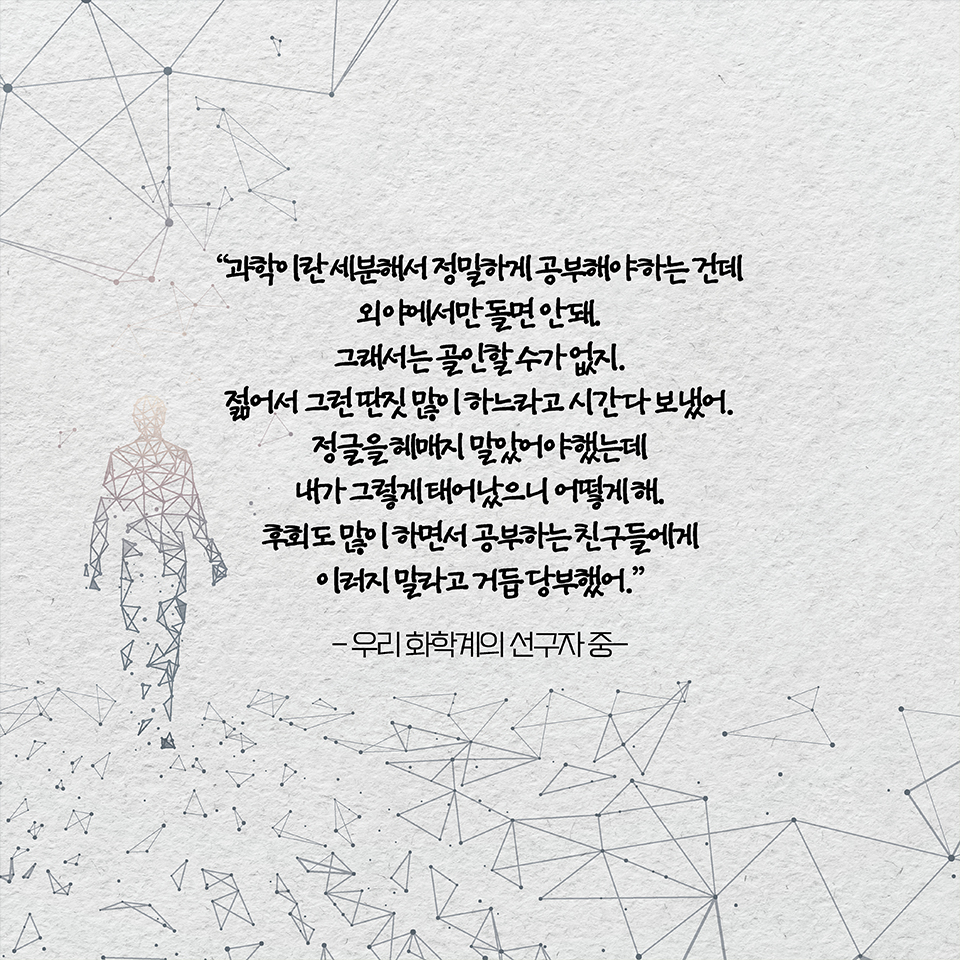 “과학이란 세분해서 정밀하게 공부해야 하는 건데
외야에서만 돌면 안 돼.
그래서는 골인할 수가 없지.
젊어서 그런 딴짓 많이 하느라고 시간 다 보냈어.
정글을 헤매지 말았어야 했는데
내가 그렇게 태어났으니 어떻게 해.
후회도 많이 하면서 공부하는 친구들에게
이러지 말라고 거듭 당부했어.”
– 우리 화학계의 선구자 중–